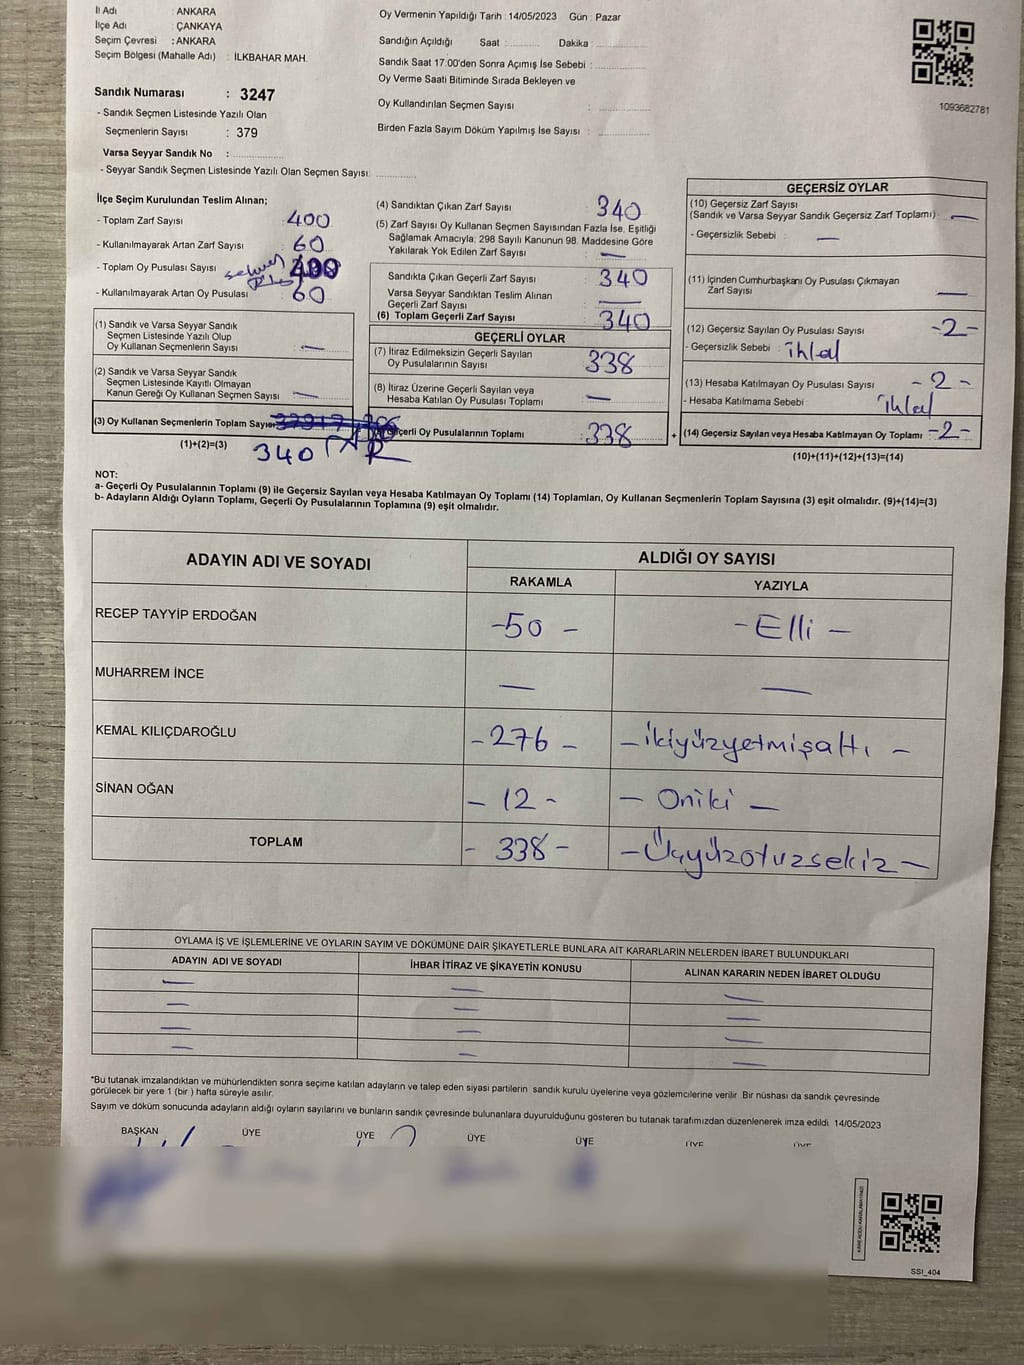 İl Adı : ANKARA
İlçe Adı : ÇANKAYA
Seçim Çevresi : ANKARA
Seçim Bölgesi (Mahalle Adı) : İLKBAHAR MAH.
Sandık Numarası : 3247
- Sandık Seçmen Listesinde Yazılı Olan
Seçmenlerin Sayısı : 379
Varsa Seyyar Sandık No :
- Seyyar Sandık Seçmen Listesinde Yazılı Olan Seçmen Sayısı:
Oy Vermenin Yapıldığı Tarih : 14/05/2023 Gün : Pazar
Sandığın Açıldığı Saat : Dakika :
Sandık Saat 17:00'den Sonra Açımış İse Sebebi :
Oy Verme Saati Bitiminde Sırada Bekleyen ve
Oy Kullandırılan Seçmen Sayısı :
Birden Fazla Sayım Döküm Yapılmış İse Sayısı :
1093682781
İlçe Seçim Kurulundan Teslim Alınan;
- Toplam Zarf Sayısı : 400
- Kullanılmayarak Artan Zarf Sayısı : 60
- Toplam Oy Pusulası Sayısı 400
- Kullanılmayarak Artan Oy Pusulası : 60
(1) Sandık ve Varsa Seyyar Sandık
Seçmen Listesinde Yazılı Olup
Oy Kullanan Seçmenlerin Sayısı : —
(2) Sandık ve Varsa Seyyar Sandık
Seçmen Listesinde Kayıtlı Olmayan
Kanun Gereği Oy Kullanan Seçmen Sayısı : —
(3) Oy Kullanan Seçmenlerin Toplam Sayısı
(1)+(2)=(3)
340
(4) Sandıktan Çıkan Zarf Sayısı : 340
(5) Zarf Sayısı Oy Kullanan Seçmen Sayısından Fazla İse, Eşitliği
Sağlamak Amacıyla, 298 Sayılı Kanunun 98. Maddesine Göre
Yakılarak Yok Edilen Zarf Sayısı : —
Sandıkta Çıkan Geçerli Zarf Sayısı : 340
Varsa Seyyar Sandıktan Teslim Alınan
Geçerli Zarf Sayısı : —
(6) Toplam Geçerli Zarf Sayısı : 340
GEÇERLİ OYLAR
(7) İtiraz Edilmeksizin Geçerli Sayılan
Oy Pusulalarının Sayısı : 338
(8) İtiraz Üzerine Geçerli Sayılan veya
Hesaba Katılan Oy Pusulası Toplamı : —
Geçerli Oy Pusulalarının Toplamı : 338
+
GEÇERSİZ OYLAR
(10) Geçersiz Zarf Sayısı
(Sandık ve Varsa Seyyar Sandık Geçersiz Zarf Toplamı) : —
- Geçersizlik Sebebi : —
(11) İçinden Cumhurbaşkanı Oy Pusulası Çıkmayan
Zarf Sayısı : —
(12) Geçersiz Sayılan Oy Pusulası Sayısı : -2-
- Geçersizlik Sebebi : ihlal
(13) Hesaba Katılmayan Oy Pusulası Sayısı : -2-
- Hesaba Katılmama Sebebi : ihlal
(14) Geçersiz Sayılan veya Hesaba Katılmayan Oy Toplamı : -2-
(10)+(11)+(12)+(13)=(14)
NOT:
a- Geçerli Oy Pusulasının Toplamı (9) ile Geçersiz Sayılan veya Hesaba Katılmayan Oy Toplamı (14) Toplamları, Oy Kullanan Seçmenlerin Toplam Sayısına (3) eşit olmalıdır. (9)+(14)=(3)
b- Adayların Aldığı Oyların Toplamı, Geçerli Oy Pusulalarının Toplamına (9) eşit olmalıdır.
ADAYIN ADI VE SOYADI ALDIĞI OY SAYISI
RAKAMLA YAZIYLA
RECEP TAYYİP ERDOĞAN -50- -Elli-
MUHARREM İNCE — —
KEMAL KILIÇDAROĞLU -276- -ikiyüzyetmişaltı-
SİNAN OĞAN -12- -Oniki-
TOPLAM -338- -Üçyüzotuzsekiz-
OYLAMA İŞ VE İŞLEMLERİNE VE OYLARIN SAYIM VE DÖKÜMÜNE DAİR ŞİKAYETLERLE BUNLARA AİT KARARLARIN NELERDEN İBARET BULUNDUKLARI
ADAYIN ADI VE SOYADI İHBAR İTİRAZ VE ŞİKAYETİN KONUSU ALINAN KARARIN NEDEN İBARET OLDUĞU
— — —
— — —
— — —
— — —
*Bu tutanak imzalandıktan ve mühürlendikten sonra seçime katılan adayların ve talep eden siyasi partilerin sandık kurulu üyelerine veya gözlemcilerine verilir. Bir nüshası da sandık çevresinde
görülecek bir yere 1 (bir ) hafta süreyle asılır.
Sayım ve döküm sonucunda adayların aldığı oyların sayılarını ve bunların sandık çevresinde bulunanlara duyurulduğunu gösteren bu tutanak tarafımızdan düzenlenerek imza edildi. 14/05/2023
BAŞKAN ÜYE ÜYE ÜYE ÜYE ÜYE ÜYE
SSI_404